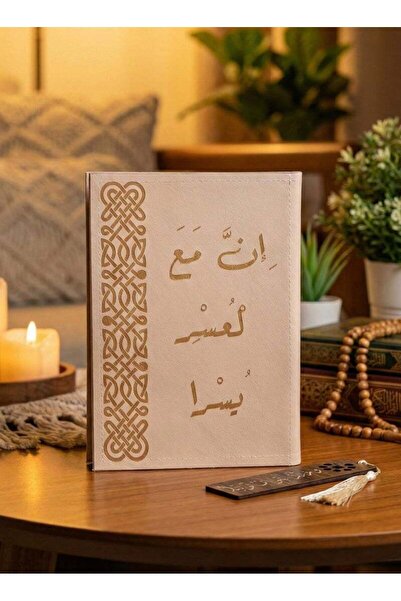 إنَّ مَعَ
لعُسْرِ
يُسْرا